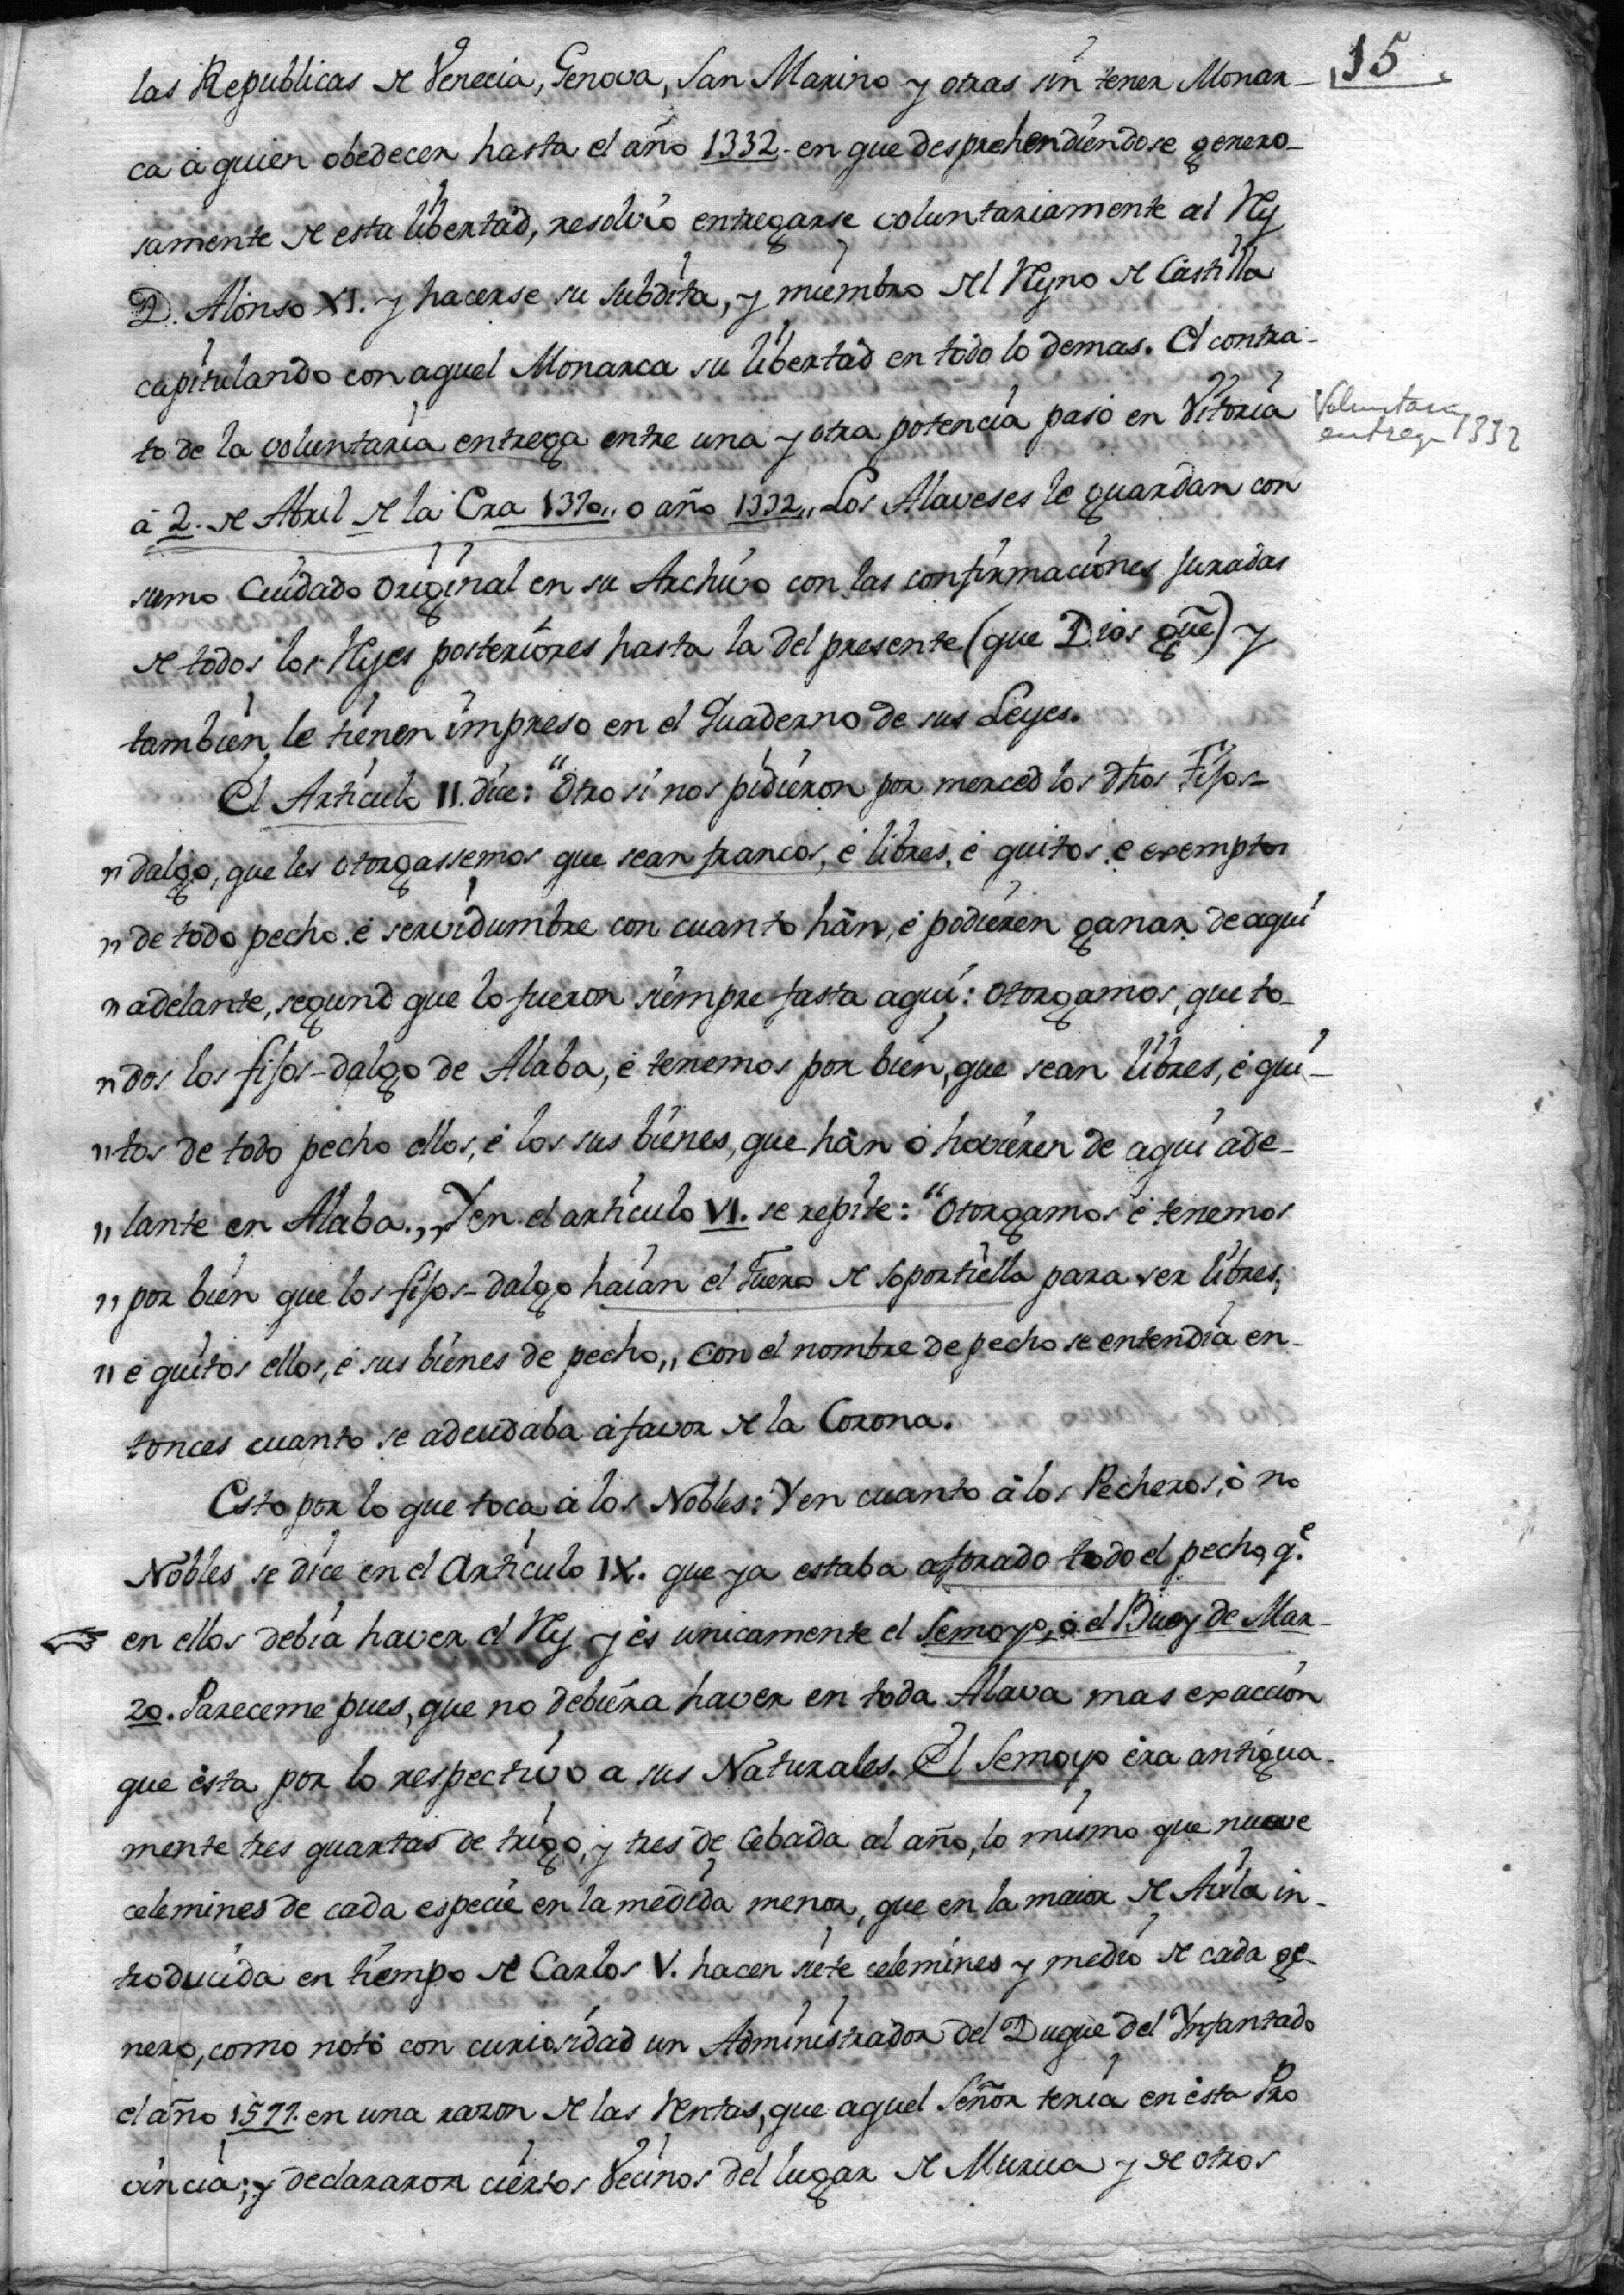 15
las Republicas de Venecia, Genova, San Marino y otras sin tener Monar-
ca à quien obedecer hasta el año 1332. en que desprehendiendose genero-
samente de esta libertad, resolvio entregarse voluntariamente al Rey
D. Alonso XI. y hacerse su subdita, y miembro del Reyno de Castilla
capitulando con aquel Monarca su libertad en todo lo demas. El contra-
to de la voluntaria entrega entre una y otra potencia pasò en Vitoria
Voluntaria
entrega 1332
à 2. de Abril de la Era 1370,, o año 1332,, Los Alaveses le guardan con
sumo Cuidado original en su Archivo con las confirmaciones juradas
de todos los Reyes posteriores hasta la del presente (que Dios gũe) y
tambien le tienen impreso en el Quaderno de sus Leyes.
El Articulo II. dice: "Otro si nos pidieron por merced los dhos Fijos-
" dalgo, que les otorgassemos que sean francos, è libres, è quitos è exemptos
" de todo pecho è servidumbre con cuanto hàn, è podieren ganar de aqui
" adelante, segund que lo fueron siempre fasta aqui: otorgamos, que to-
" dos los fijos-dalgo de Alaba, è tenemos por bien, que sean libres, è qui-
" tos de todo pecho ellos, è los sus bienes, que hàn ò hovieren de aqui ade-
" lante en Alaba.,, Y en el articulo VI. se repite: "Otorgamos è tenemos
" por bien que los fijos-dalgo haian el Fuero de Soportiella para ser libres,
" è quitos ellos, è sus bienes de pecho,, con el nombre de pecho se entendia en-
tonces cuanto se adeudaba à favor de la Corona.
Esto por lo que toca à los Nobles: Y en cuanto à los Pecheros, ò no
Nobles se dice en el Articulo IX. que ya estaba aforado todo el pecho, q.e
en ellos debia haver el Rey y ès unicamente el Semoyo, ò el Buey de Mar-
zo. Pareceme pues, que no debiera haver en toda Alava mas exaccion
que èsta por lo respectivo a sus Naturales. El Semoyo èra antigua-
mente tres quartas de trigo, y tres de Cebada al año, lo mismo que nueve
celemines de cada especie en la medida menor, que en la maior de Avila in-
troducida en tiempo de Carlos V. hacen siete celemines y medio de cada ge-
nero, como notò con curiosidad un Administrador del Duque del Ynfantado
el año 1577. en una razon de las Rentas, que aquel Señor tenia en èsta Pro
vincia; y declararon ciertos Vecinos del lugar de Murua y de otros